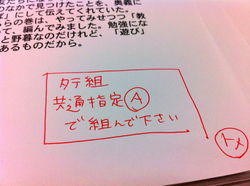 のなかで見つけたことを、奥義に
」にして伝えてくれていた。
らの巻は、やってみせつつ「教
て、編んでみました。勉強にな
と野暮なのだけれど、「遊び」
あるものだから。
タテ組
共通指定Ⓐ
で組んで下さい
トメ